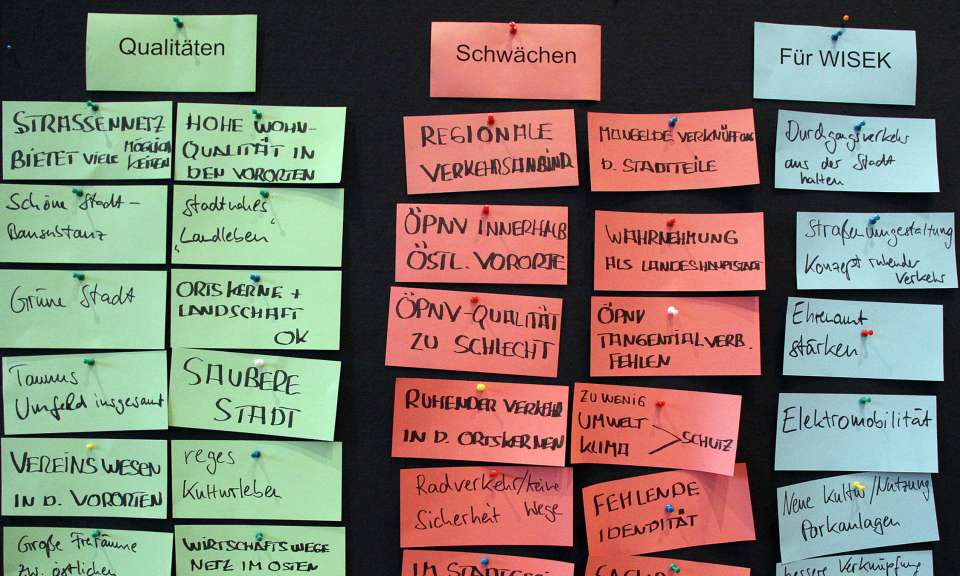 Qualitäten
STRASSENNETZ
BIETET VIELE MÖGLICH
KEITEN
HOHE WOHN-
QUALITÄT IN
DEN VORORTEN
Schöne Stadt-
Bausubstanz
Stadtnahes
„Landleben"
Grüne Stadt
ORTSKERNE +
LANDSCHAFT
OK
Taunus
Umfeld insgesamt
SAUBERE
STADT
VEREINSWESEN
IN D. VORORTEN
reges
Kulturleben
Große Freiräume
zw. östlichen
WIRTSCHAFTSWEGE
NETZ IM OSTEN
Schwächen
REGIONALE
VERKEHRSANBIND.
MANGELDE VERKNÜPFUNG
D. STADTTEILE
ÖPNV INNERHALB
ÖSTL. VORORTE
WAHRNEHMUNG
ALS LANDESHAUPTSTADT
ÖPNV-QUALITÄT
ZU SCHLECHT
ÖPNV
TANGENTIALVERB.
FEHLEN
RUHENDER VERKEHR
IN D. ORTSKERNEN
ZU WENIG
UMWELT
KLIMA
SCHUTZ
Radverkehr/keine
Sicherheit Wege
FEHLENDE
IDENDITÄT
IM
Für WISEK
Durchgangsverkehr
aus der Stadt
halten
Straßenumgestaltung
Konzept ruhender
Verkehr
Ehrenamt
stärken
Elektromobilität
Neue Kultur/Nutzung
Parkanlagen
bessere Verknüpfung